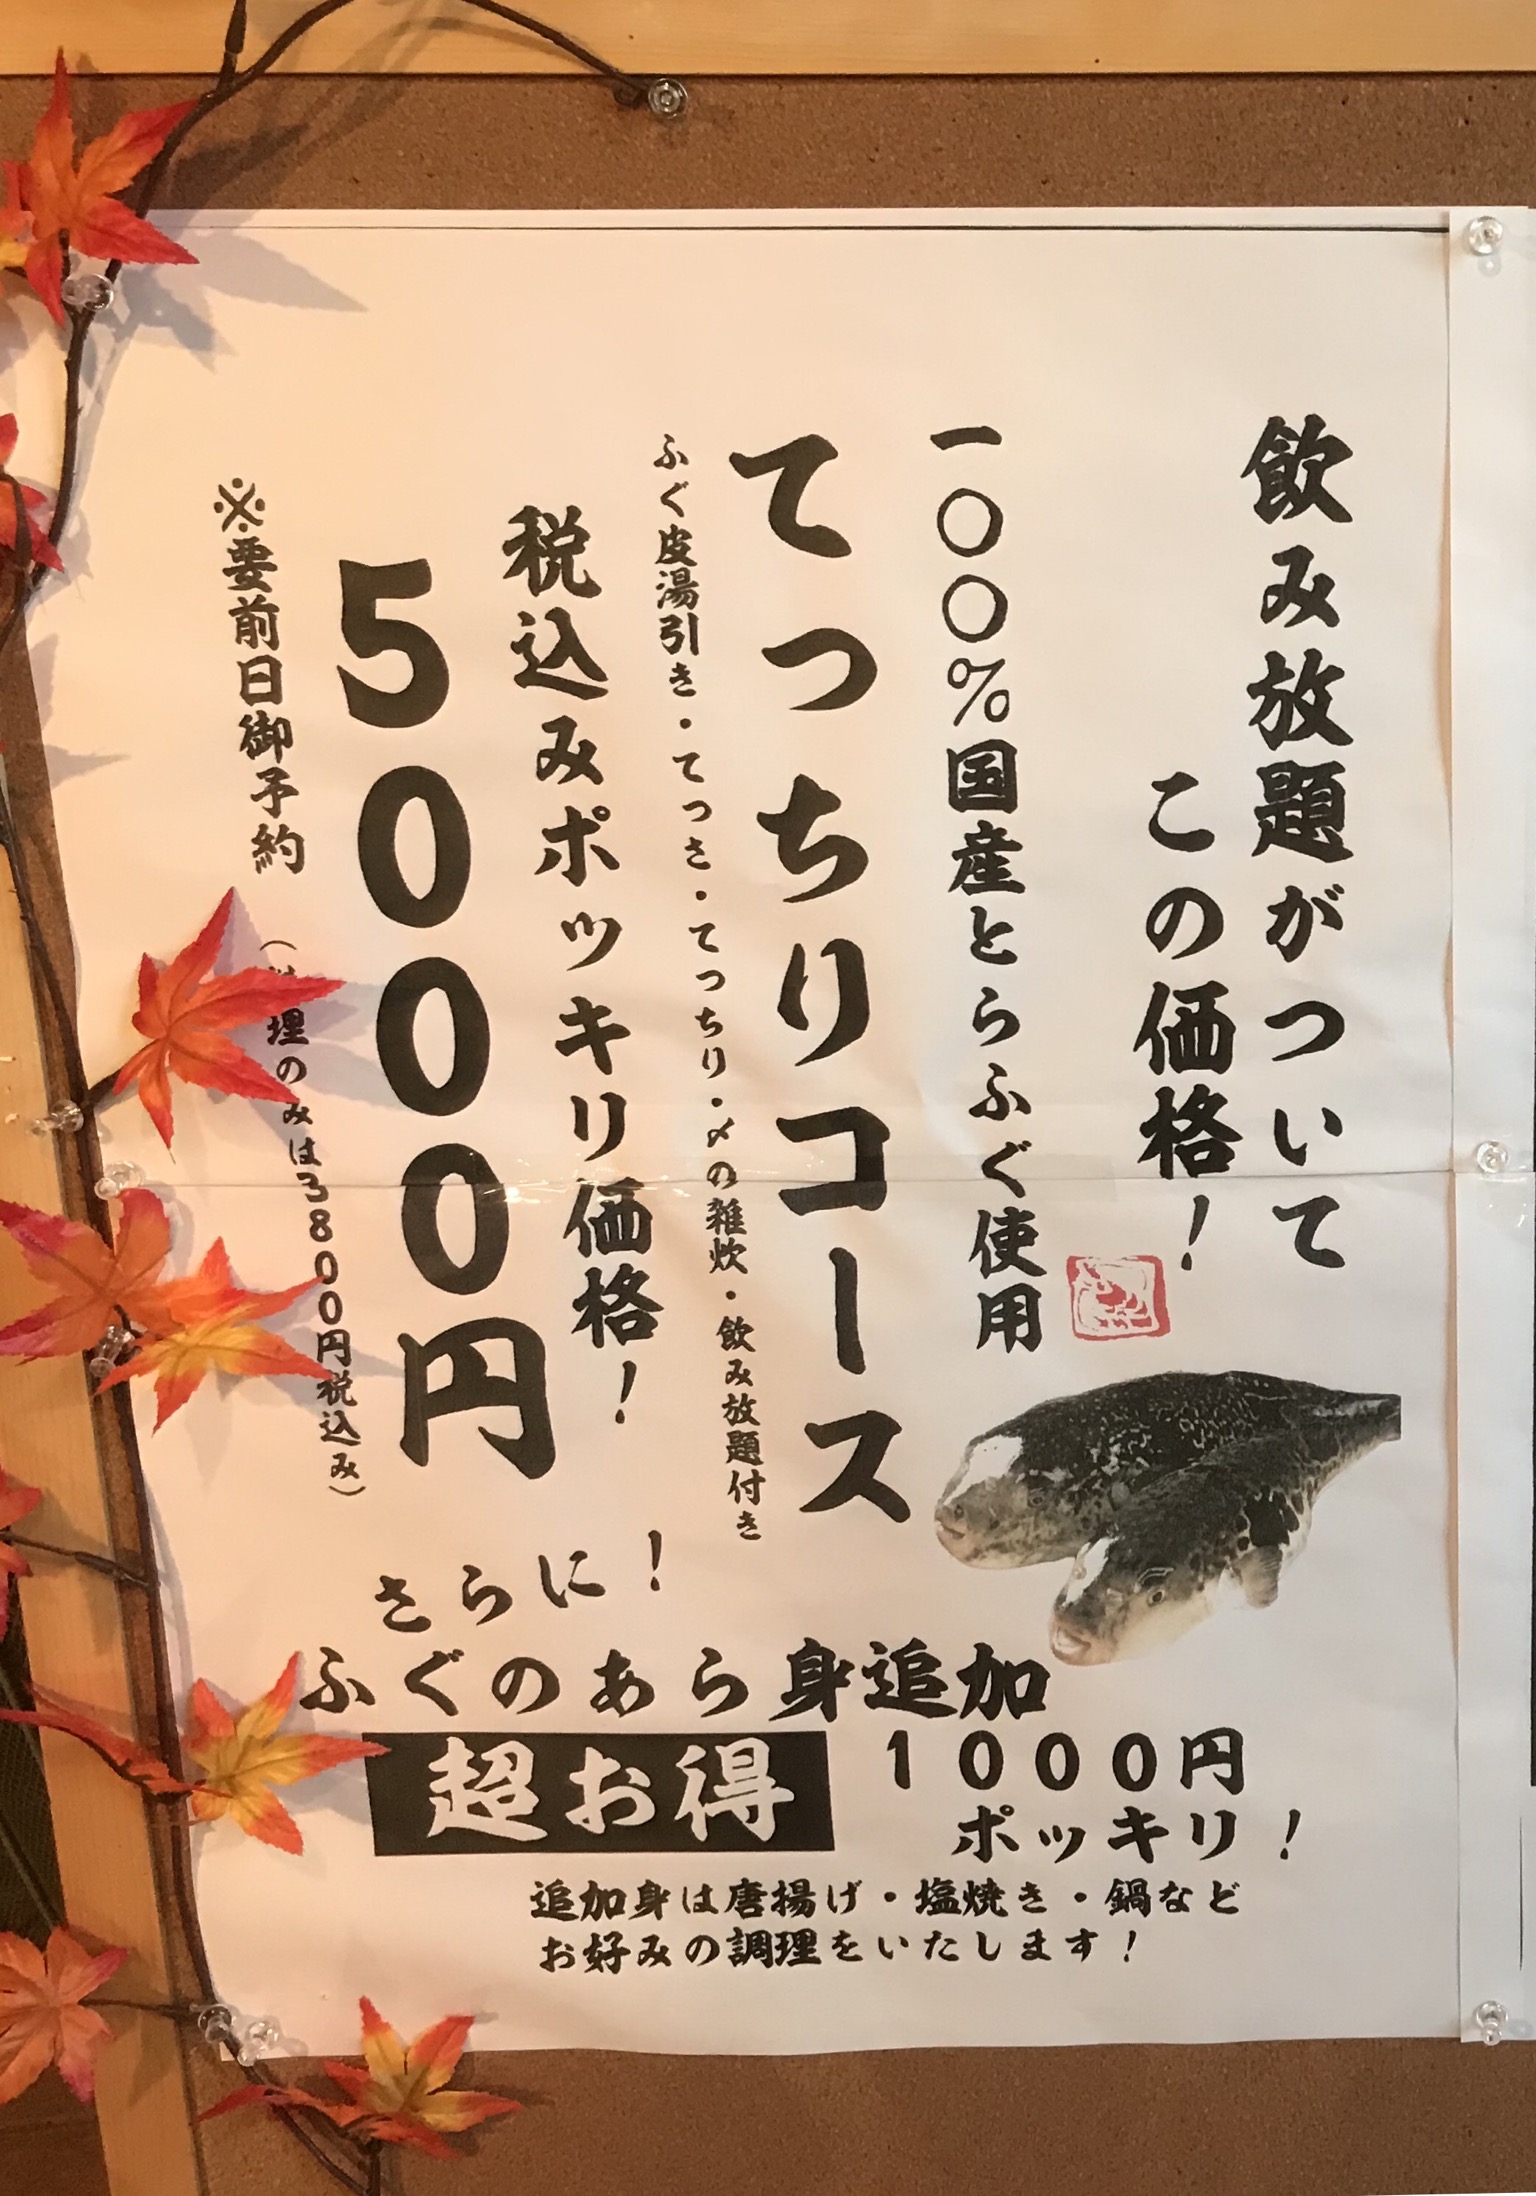 飲み放題がついて
この価格！
一〇〇％国産とらふぐ使用
てっちりコース
ふぐ皮湯引き・てっさ・てっちり・〆の雑炊・飲み放題付き
税込みポッキリ価格！
5000円
※要前日御予約
理のみは3800円税込み）
さらに！
ふぐのあら身追加
超お得
1000円
ポッキリ！
追加身は唐揚げ・塩焼き・鍋など
お好みの調理をいたします！